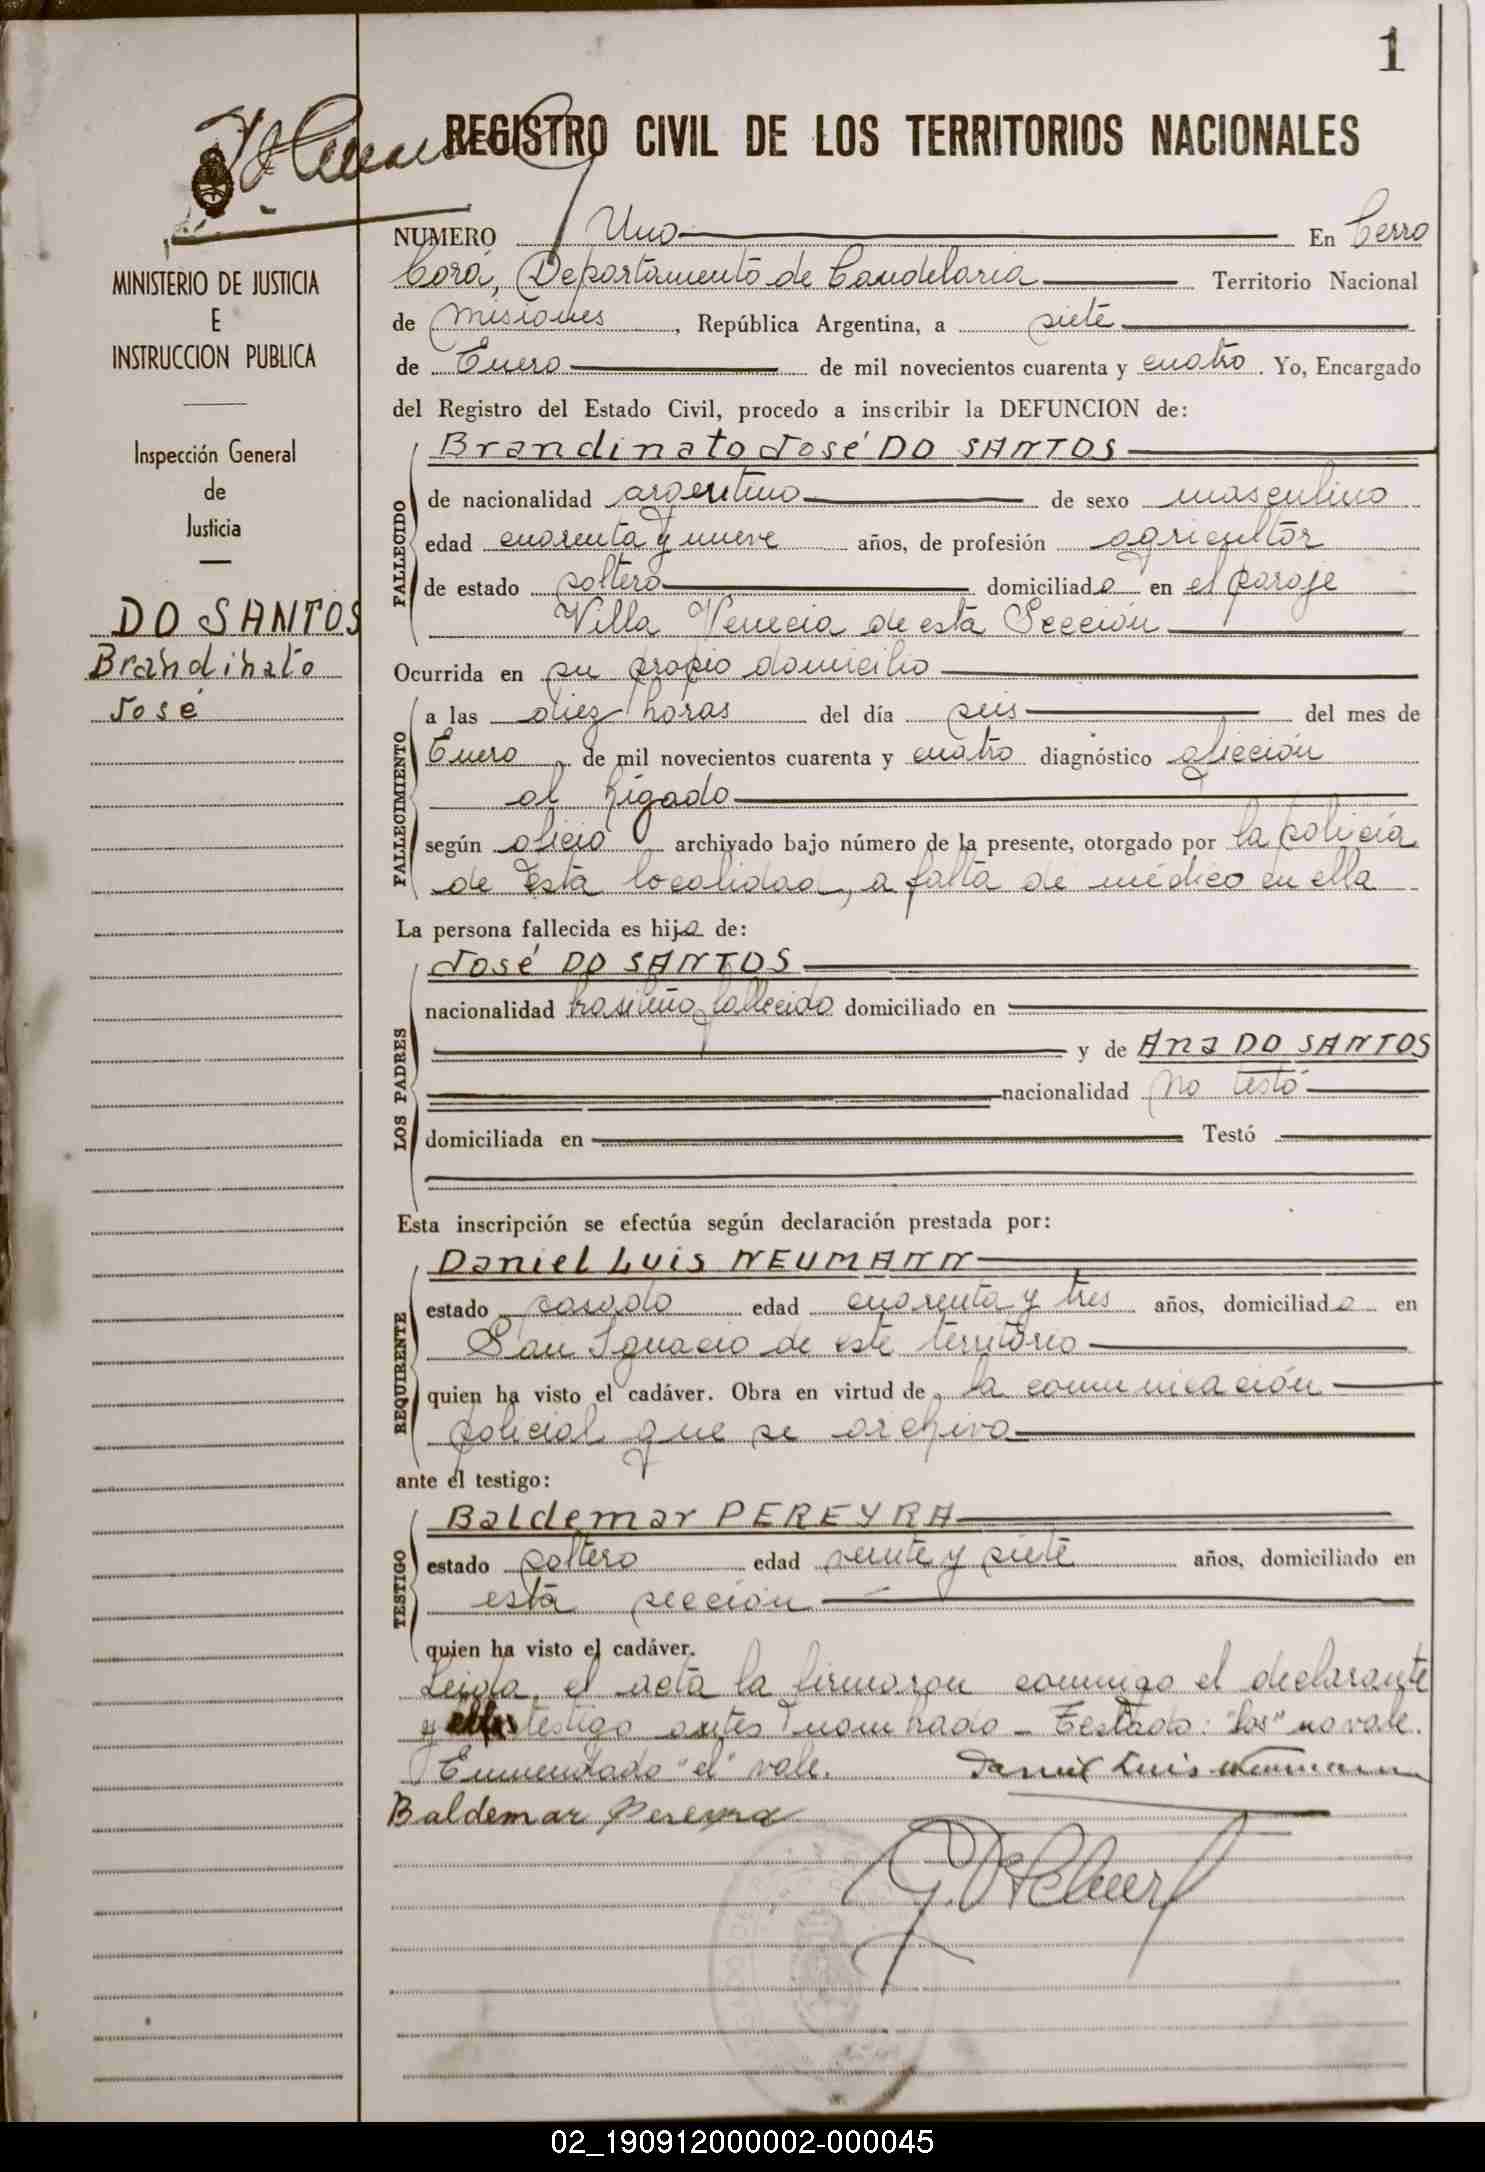 1
REGISTRO CIVIL DE LOS TERRITORIOS NACIONALES
MINISTERIO DE JUSTICIA
E
INSTRUCCION PUBLICA
Inspección General
de
Justicia
DO SANTOS
Brandinato
José
NUMERO Uno En Cerro
Corá, Departamento de Candelaria Territorio Nacional
de Misiones, República Argentina, a siete
de Enero de mil novecientos cuarenta y cuatro. Yo, Encargado
del Registro del Estado Civil, procedo a inscribir la DEFUNCION de:
FALLECIDO
Brandinato José DO SANTOS
de nacionalidad argentino de sexo masculino
edad cuarenta y nueve años, de profesión agricultor
de estado soltero domiciliado en el paraje
Villa Venecia de esta Sección
Ocurrida en su propio domicilio
FALLECIMIENTO
a las diez horas del día seis del mes de
Enero, de mil novecientos cuarenta y cuatro diagnóstico afección
al hígado
según oficio archivado bajo número de la presente, otorgado por la policía
de esta localidad, a falta de médico en ella
La persona fallecida es hijo de:
LOS PADRES
José DO SANTOS
nacionalidad brasileño, fallecido domiciliado en
y de Ana DO SANTOS
nacionalidad no testó
domiciliada en Testó
Esta inscripción se efectúa según declaración prestada por:
REQUIRENTE
Daniel Luis NEUMANN
estado casado edad cuarenta y tres años, domiciliado en
San Ignacio de este territorio
quien ha visto el cadáver. Obra en virtud de la comunicación
policial que se archiva
ante el testigo:
TESTIGO
Baldemar PEREYRA
estado soltero edad veinte y siete años, domiciliado en
esta sección
quien ha visto el cadáver.
Leída, el acta la firmaron conmigo el declarante
y el testigo antes nombrado - Testado: "los" no vale.
Enmendado "el" vale. Daniel Luis Neumann
Baldemar Pereyra
02_190912000002-000045